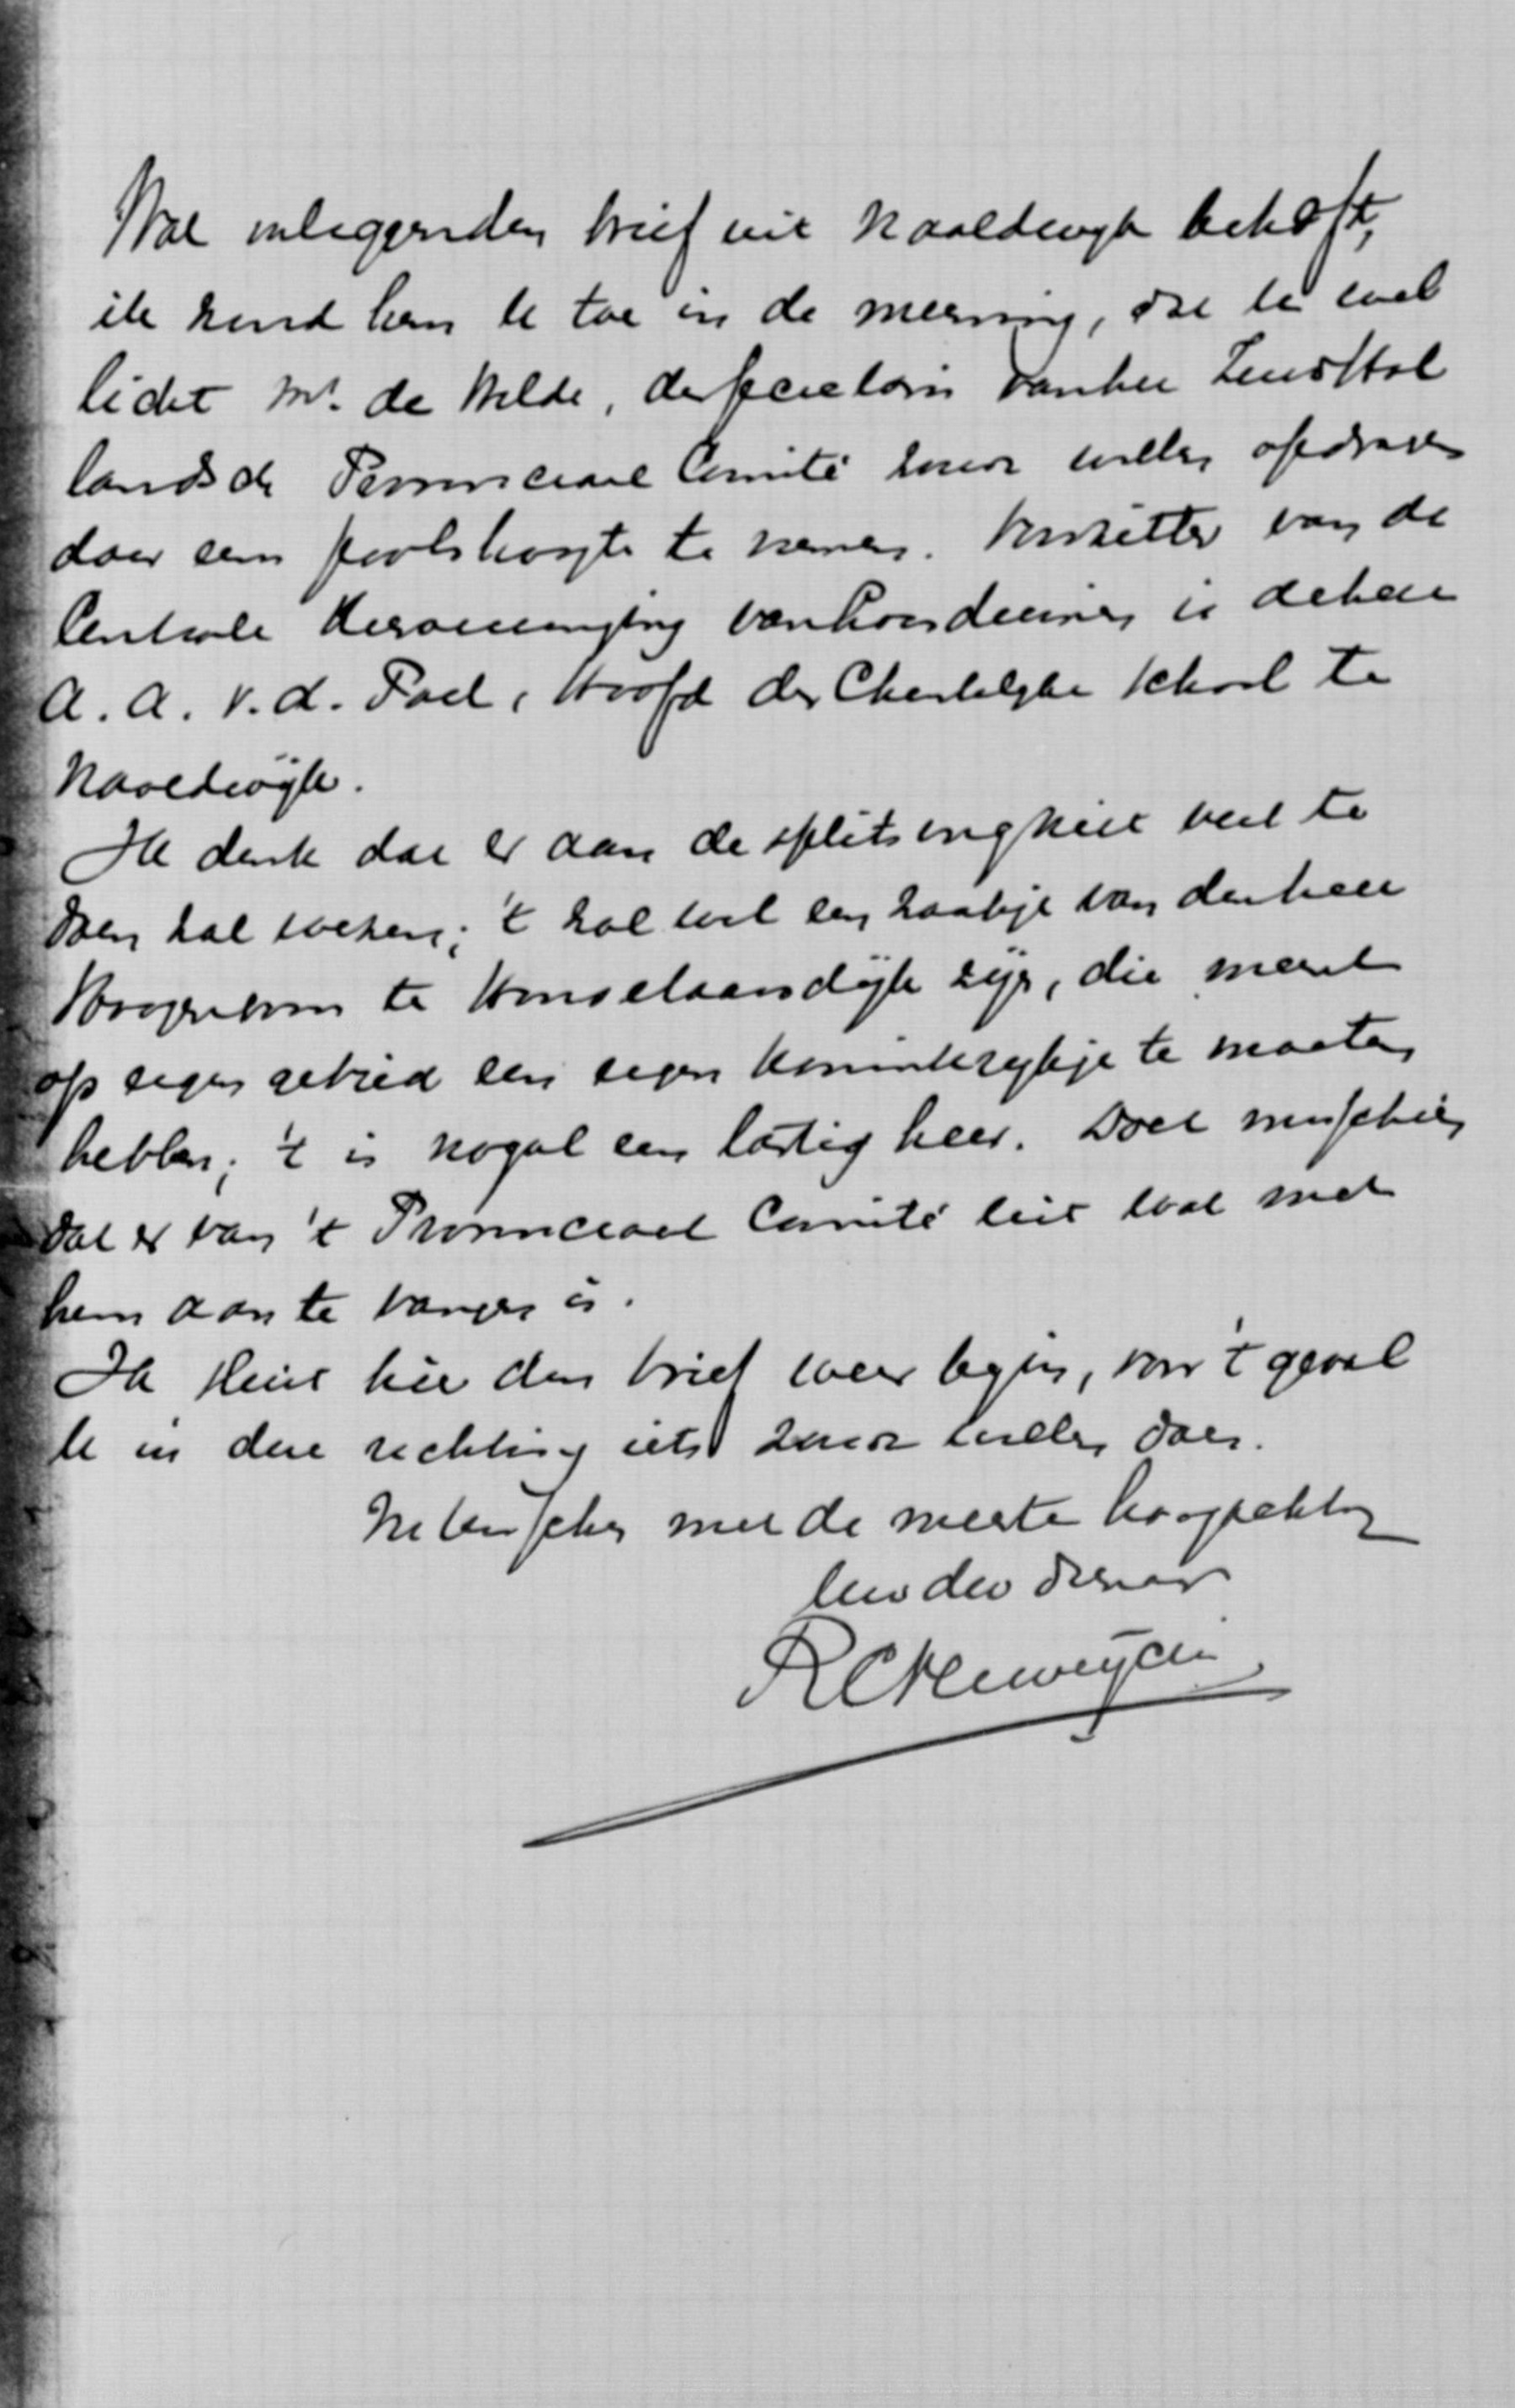 Wat inliggenden brief uit Naaldwijk betreft,
ik zend hem U toe in de meening, dat U wel
licht Mr. de Wilde, den secretaris van het Zuid Hol
landsch Provinciaal Comité zoudt willen opdragen
daar eens poolshoogte te nemen. Voorzitter van de
Centrale Kiesvereeniging van Loosduinen is de heer
A. A. v. d. Poel, Hoofd der Christelijke School te
Naaldwijk.
Ik denk dat er aan de splitsing niet veel te
doen zal wezen; 't zal wel een zaakje van den heer
te Honselaarsdijk zijn, die meent
op eigen gebied een eigen koninkrijkje te moeten
hebben; 't is nogal een lastig heer. Doch misschien
dat er van 't Provinciaal Comité uit wat met
hem aan te vangen is.
Ik sluit hier den brief weer bij in, voor 't geval
U in deze richting iets zoudt willen doen.
Intusschen met de meeste hoogachting
Uw dw dienaar